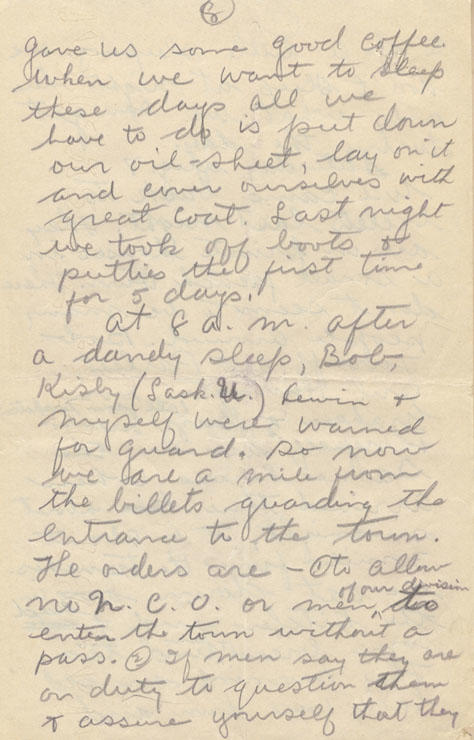 6
gave us some good coffee.
When we want to sleep
these days all we
have to do is put down
our oil-sheet, lay on it
and cover ourselves with
great coat. Last night
we took off boots &
putties the first time
for 5 days.
At 8 a.m. after
a dandy sleep, Bob,
Kisby (Sask. U.) Lewin &
myself were warned
for guard. So now
we are a mile from
the billets guarding the
entrance to the town.
The orders are – ① to allow
no N.C.O. or men of our division to
enter the town without a
pass. ② If men say they are
on duty to question them
& assure yourself that they